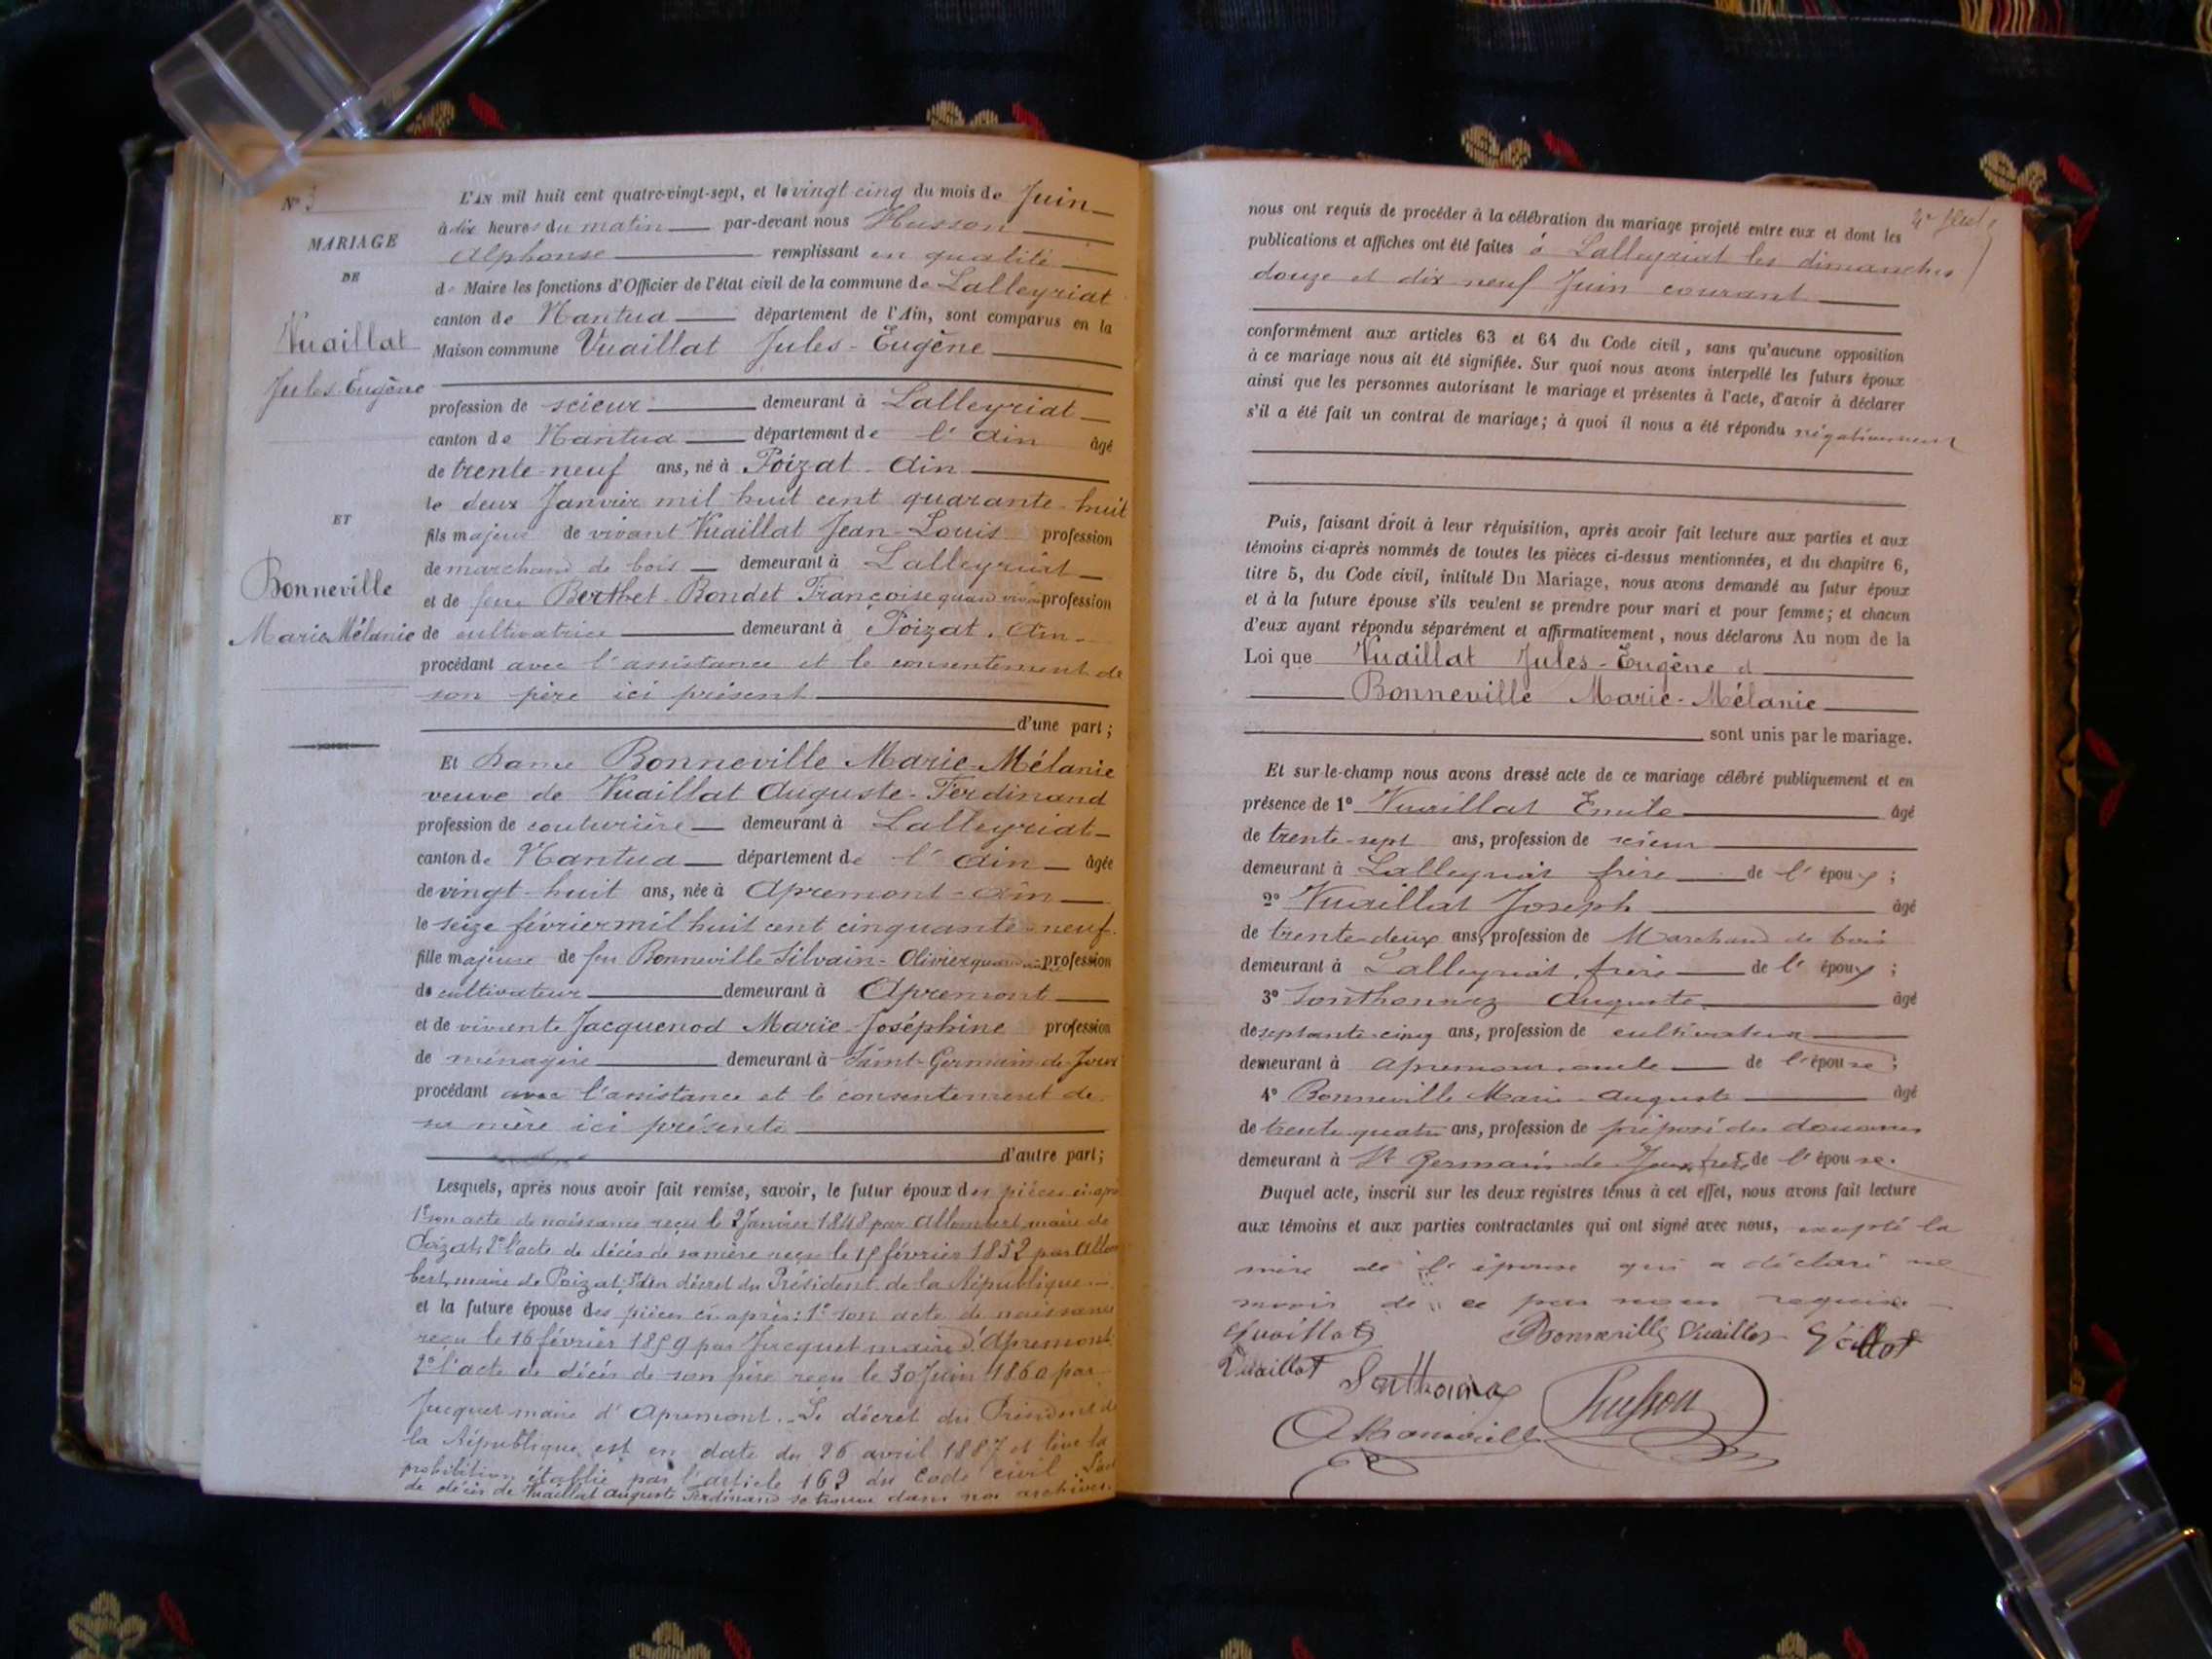 N° 3
MARIAGE
DE
Vuaillat
Jules-Eugène
ET
Bonneville
Marie Mélanie
L'AN mil huit cent quatre-vingt-sept, et le vingt cinq du mois de Juin
à dix heures du matin par-devant nous Husson
Alphonse remplissant en qualité
de Maire les fonctions d'Officier de l'état civil de la commune de Lalleyriat
canton de Nantua département de l'Ain, sont comparus en la
Maison commune Vuaillat Jules-Eugène
profession de scieur demeurant à Lalleyriat
canton de Nantua département de l'Ain âgé
de trente-neuf ans, né à Poizat-Ain
le deux Janvier mil huit cent quarante-huit
fils majeur de vivant Vuaillat Jean-Louis profession
de marchand de bois demeurant à Lalleyriat
et de feue Berthet-Bondet Françoise quand vivait profession
de cultivatrice demeurant à Poizat. Ain
procédant avec l'assistance et le consentement de
son père ici présent
d'une part;
Et Dame Bonneville Marie-Mélanie
veuve de Vuaillat Auguste-Ferdinand
profession de couturière demeurant à Lalleyriat
canton de Nantua département de l'Ain âgée
de vingt-huit ans, née à Apremont-Ain
le seize février mil huit cent cinquante-neuf.
fille majeure de feu Bonneville Silvain-Olivier quand vivait profession
de cultivateur demeurant à Apremont
et de vivante Jacquenod Marie-Joséphine profession
de ménagère demeurant à Saint-Germain-de-Joux
procédant avec l'assistance et le consentement de
sa mère ici présente
d'autre part;
Lesquels, après nous avoir fait remise, savoir, le futur époux des pièces ci-après
1° son acte de naissance reçu le 2 Janvier 1848 par Allombert, maire de
Poizat; 2° l'acte de décès de sa mère reçu le février 1852 par Allom
bert, maire de Poizat; 3° un décret du Président de la République.
et la future épouse des pièces ci-après: 1° son acte de naissance
reçu le 16 février 1859 par Jacquet maire d'Apremont.
2° l'acte de décès de son père reçu le 30 Juin 1860 par
Jacquet maire d'Apremont. Le décret du Président de
la République est en date du 26 avril 1887 et lève la
prohibition établie par l'article 162 du Code civil. L'acte
de décès de Vuaillat Auguste Ferdinand se trouve dans nos archives.
nous ont requis de procéder à la célébration du mariage projeté entre eux et dont les
publications et affiches ont été faites à Lalleyriat les dimanches
douze et dix-neuf Juin courant
conformément aux articles 63 et 64 du Code civil, sans qu'aucune opposition
à ce mariage nous ait été signifiée. Sur quoi nous avons interpellé les futurs époux
ainsi que les personnes autorisant le mariage et présentes à l'acte, d'avoir à déclarer
s'il a été fait un contrat de mariage; à quoi il nous a été répondu négativement
Puis, faisant droit à leur réquisition, après avoir fait lecture aux parties et aux
témoins ci-après nommés de toutes les pièces ci-dessus mentionnées, et du chapitre 6,
titre 5, du Code civil, intitulé Du Mariage, nous avons demandé au futur époux
et à la future épouse s'ils veulent se prendre pour mari et pour femme; et chacun
d'eux ayant répondu séparément et affirmativement, nous déclarons Au nom de la
Loi que Vuaillat Jules-Eugène et
Bonneville Marie-Mélanie
sont unis par le mariage.
Et sur-le-champ nous avons dressé acte de ce mariage célébré publiquement et en
présence de 1° Vuaillat Emile âgé
de trente-sept ans, profession de scieur
demeurant à Lalleyriat frère de l'époux;
2° Vuaillat Joseph âgé
de trente-deux ans, profession de Marchand de bois
demeurant à Lalleyriat, frère de l'époux;
3° Sonthonnax Auguste âgé
de septante-cinq ans, profession de cultivateur
demeurant à Apremont, oncle de l'épouse;
4° Bonneville Marie-Auguste âgé
de trente-quatre ans, profession de préposé des douanes
demeurant à St Germain-de-Joux, frère de l'épouse.
Duquel acte, inscrit sur les deux registres tenus à cet effet, nous avons fait lecture
aux témoins et aux parties contractantes qui ont signé avec nous, excepté la
mère de l'épouse qui a déclaré ne
savoir de ce par nous requise
Vuaillat Bonneville Vuaillat Vuaillat
Vuaillat Sonthonnax Husson
A Bonneville